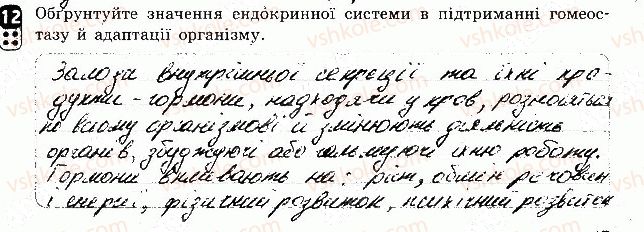 12 Обґрунтуйте значення ендокринної системи в підтриманні гомеос-
тазу й адаптації організму.
Залози внутрішньої секреції та їхні про-
дукти - гормони, надходячи у кров, розносяться
по всьому організмові й змінюють діяльність
органів, збуджуючі або гальмуючі їхню роботу.
Гормони впливають на: ріст, обмін речовин
і енергії, фізичний розвиток, психічний розвиток